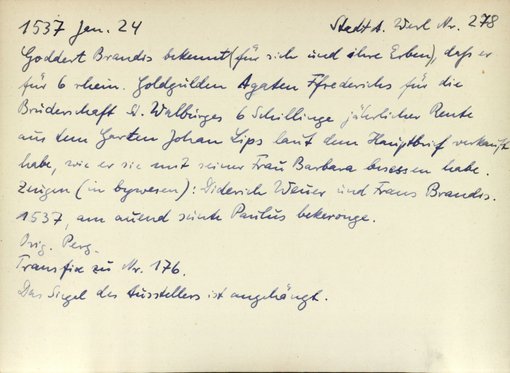 1537 Jan. 24 Stadt A. Werl Nr. 278
Goddert Brandis bekennt (für sich und ihre Erben), daß er
für 6 rhein. Goldgülden Agaten Ffrederichs für die
Bruderschaft St. Walburges 6 Schillinge jährlicher Rente
aus dem Garten Johan Lips laut dem Hauptbrief verkauft
habe, wie er sie mit seiner Frau Barbara besessen habe.
Zeugen (in bywesen): Diderich Weuer und Frans Brandis.
1537, am auend sinte Paulus bekeronge.
Orig. Perg.
Transfix zu Nr. 176.
Das Siegel des Ausstellers ist angehängt.